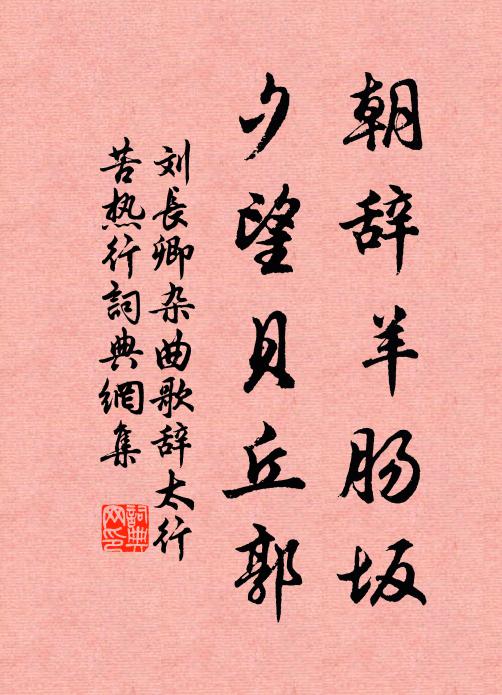 朝辞羊肠坂
夕望贝丘郭
刘長卿杂曲歌辞太行
苦热行詞典網集
詞典网印